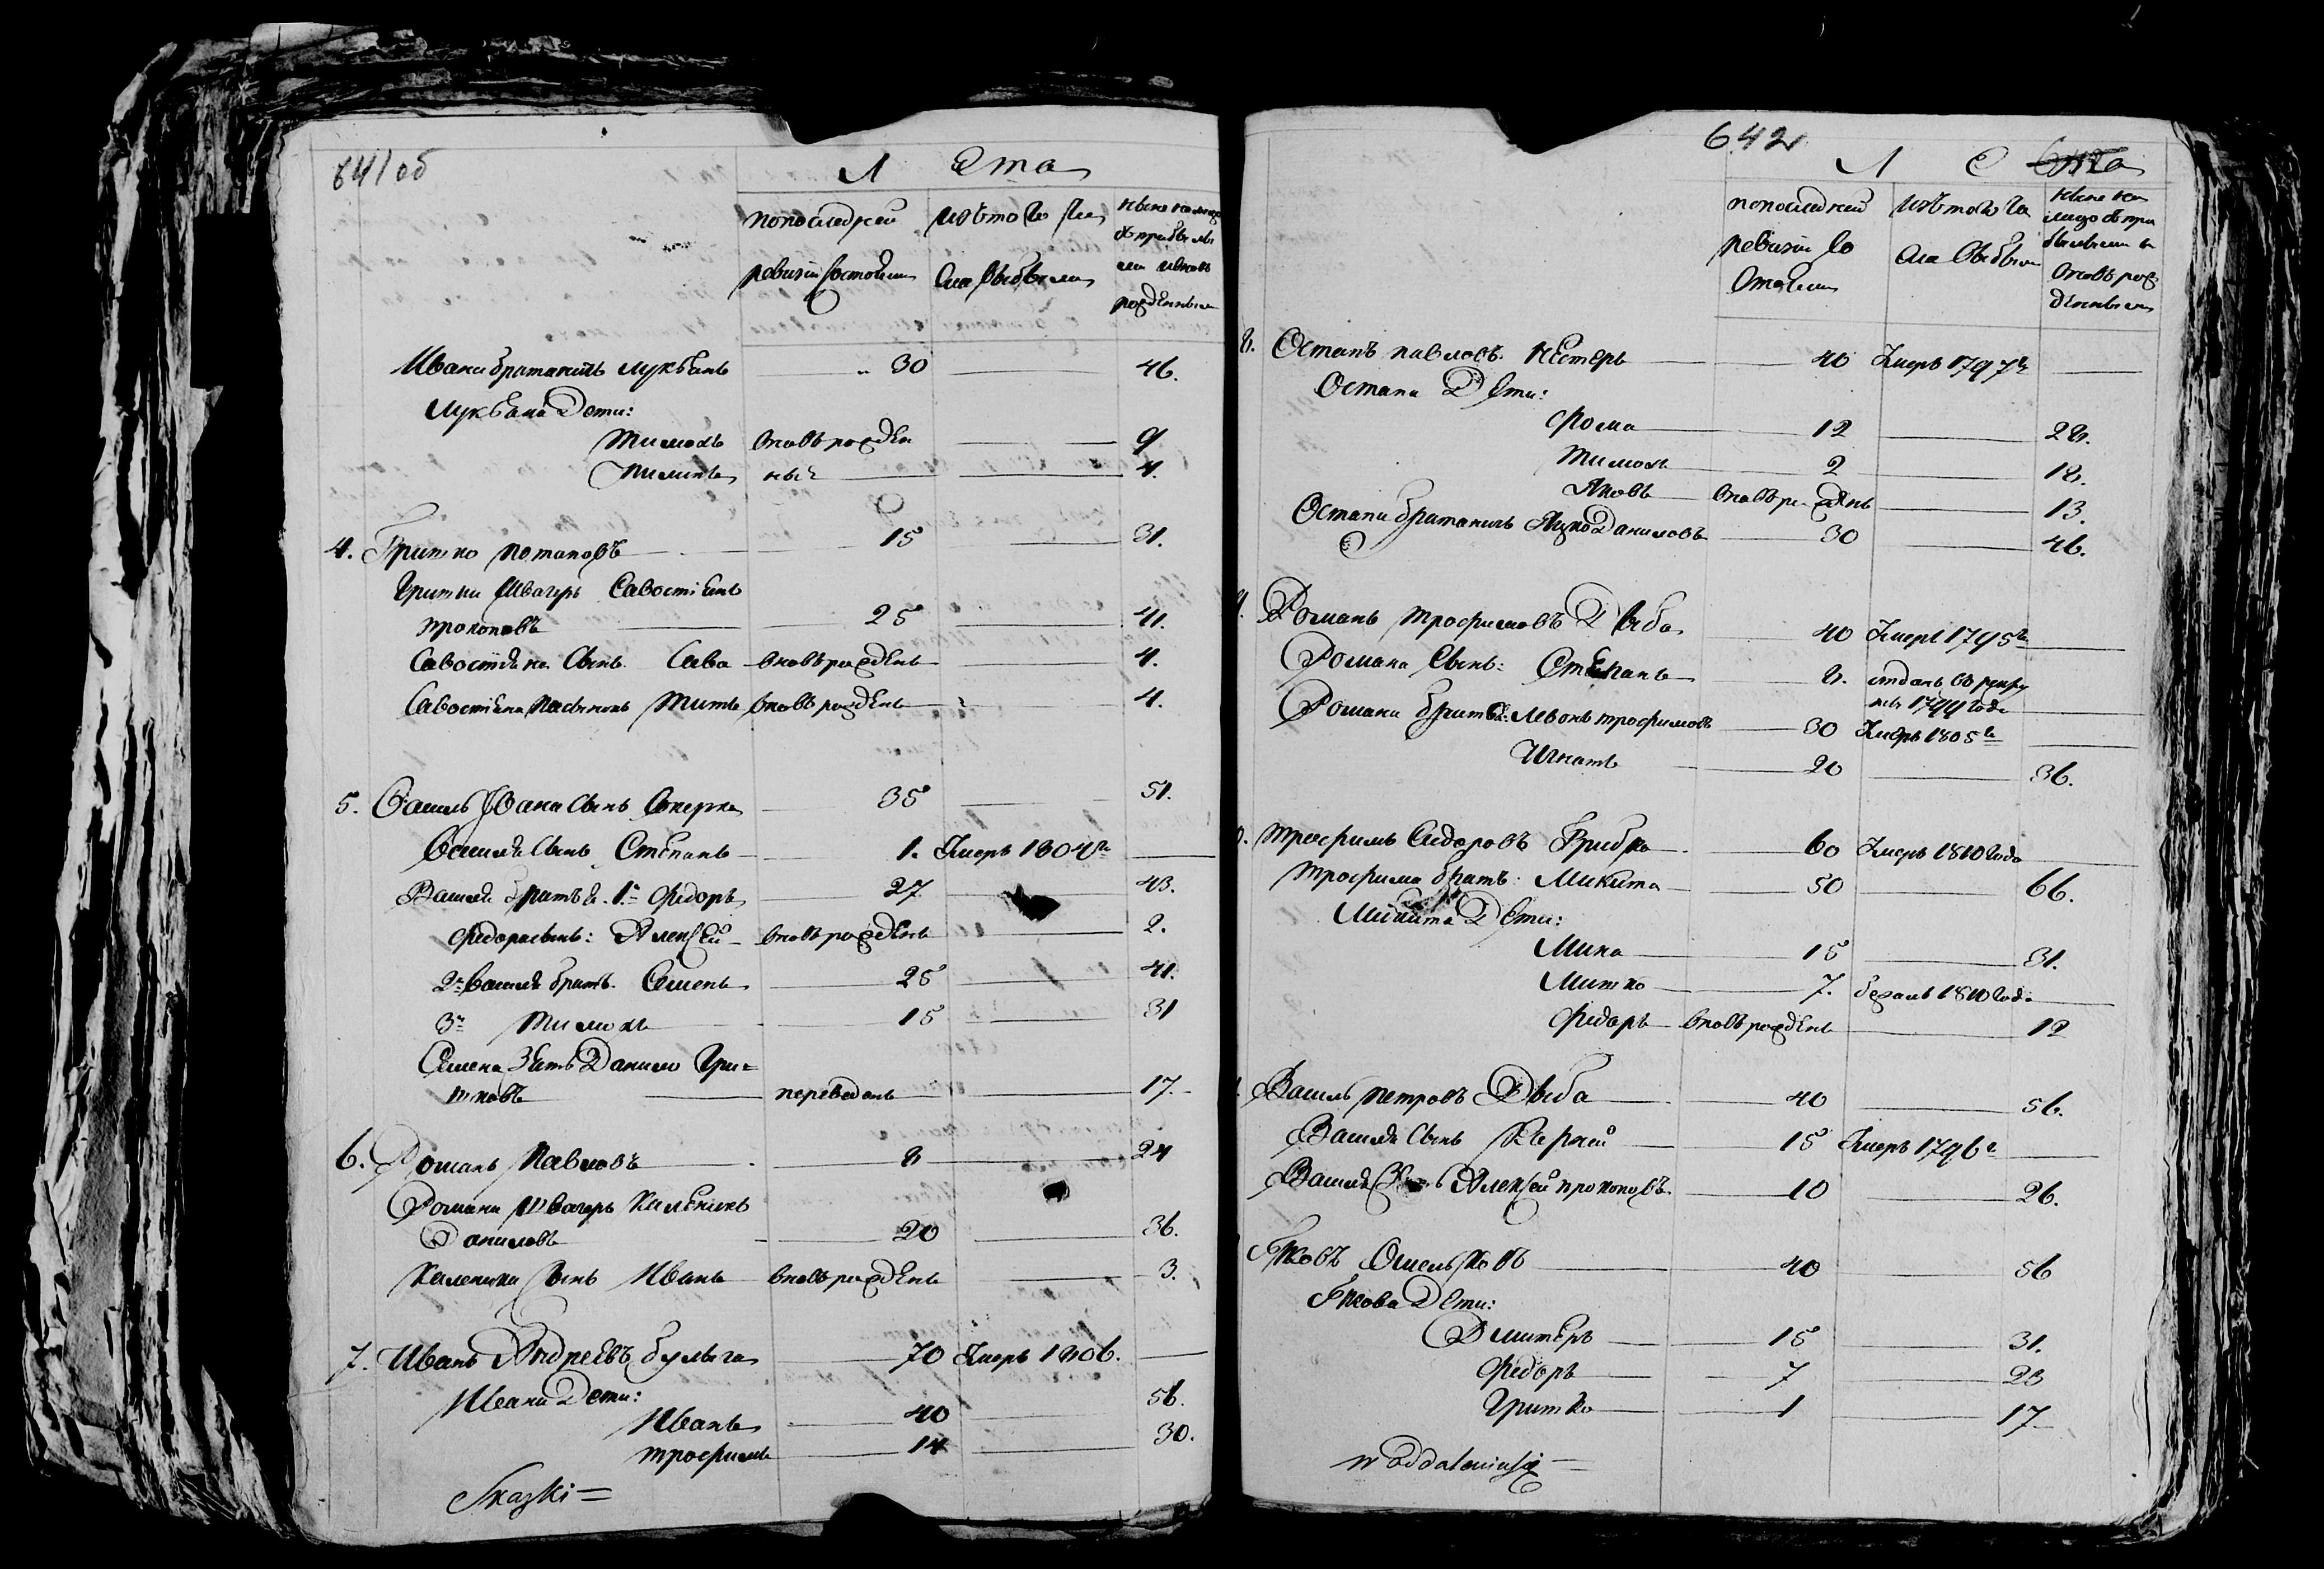 641 об
Л Ета
по последней
ревизіи состояли
изъ того чи
сла выбыли
ныне на лицо
съ прибылы
ми и вновь
рожденными
Ивана братаничъ Лукьянъ 30 46.
Лукьяна Дети:
Тимохъ вновь рожден 9
Пилипъ ный 4.
4. Гришко Потаповъ 15 31.
Гришки Швагеръ Савостіянъ
Прокоповъ 25 41.
Савостіяна Сынъ Сава вновь рожденъ 4.
Савостіяна Пасынокъ Титъ вновь рожденъ 4.
5. Василь Ивана Сынъ 35 51.
Василя Сынъ Степанъ 1. Умеръ 1804 г
Василя Братья. 1й Федоръ 27 43.
Федора сынъ: Алексей вновь рожденъ 2.
2й Василя братъ. Семенъ 25 41.
3й Тимохъ 15 31
Семена Зять Данило Гри=
шковъ переведенъ 17.
6. Романъ Павловъ 8 24
Романа Швагеръ Каленикъ
Даниловъ 20 36.
Каленика Сынъ Иванъ вновь рожденъ 3.
7. Иванъ Андреевъ Булыга 70 Умеръ 1806.
Ивана Дети:
Иванъ 40 56.
Трофимъ 14 30.
Skazki =
642
Л Ета
по последней
ревизіи со
стояли
изъ того чи
сла выбыли
ныне на
лицо съ при
былыми и
вновь рож
денными
8. Остапъ Павловъ Нестеръ 40 Умеръ 1797 г
Остапа Дети:
Фома 12 28.
Тимохъ 2 18.
Яковъ вновь рожденъ 13.
Остапа братаничъ Яцко Даниловъ 30 46.
9. Романъ Трофимовъ Дыба 40 Умеръ 1795 г
Романа Сынъ: Степанъ 8. отданъ въ рекру
ты 1799 года
Романа братья: Левонъ Трофимовъ 30 Умеръ 1805 г
Игнатъ 20 36.
0. Трофимъ Сидоровъ Грибко 60 Умеръ 1810 года
Трофима братъ: Микита 50 66.
Микита Дети:
Мина 15 31.
Митко 7. бежалъ 1810 года
Федоръ вновь рожденъ 12
Василь Петровъ Дыба 40 56.
Василя Сынъ Карней 15 Умеръ 1796 г
Василя Алексей Прокоповъ 10 26.
Яковъ Омельяновъ 40 56
Якова Дети:
Дмитеръ 15 31.
Федоръ 7 23
Гришко 1 17
w Oddaleniusię =